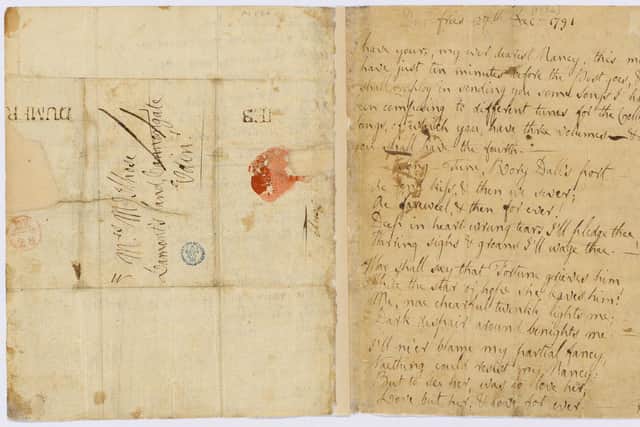 DUMFR
IES
Mrs McLehose
Lamont's land Cannongate
Edinr
fries 27th Dec 1791
have yours, my ever dearest Nancy, this mo
have just ten minutes before the Post goes, &
shall employ in sending you some Songs I h
en composing to different tunes for the Colle
Songs, of which you have three volumes — &
you shall have the fourth. —
Tune, Rory Dall's port —
Ae kiss, & then we sever;
Ae fareweel, & then for ever!
Deep in heart-wrung tears I'll pledge thee,
Warring sighs & groans I'll wage thee. —
Wha shall say that Fortune grieves him
While the star of hope she leaves him:
Me, nae chearful twinkle lights me;
Dark despair around benights me —
I'll ne'er blame my partial fancy,
Naething could resist my Nancy:
But to see her, was to love her;
Love but her, & love for ever —